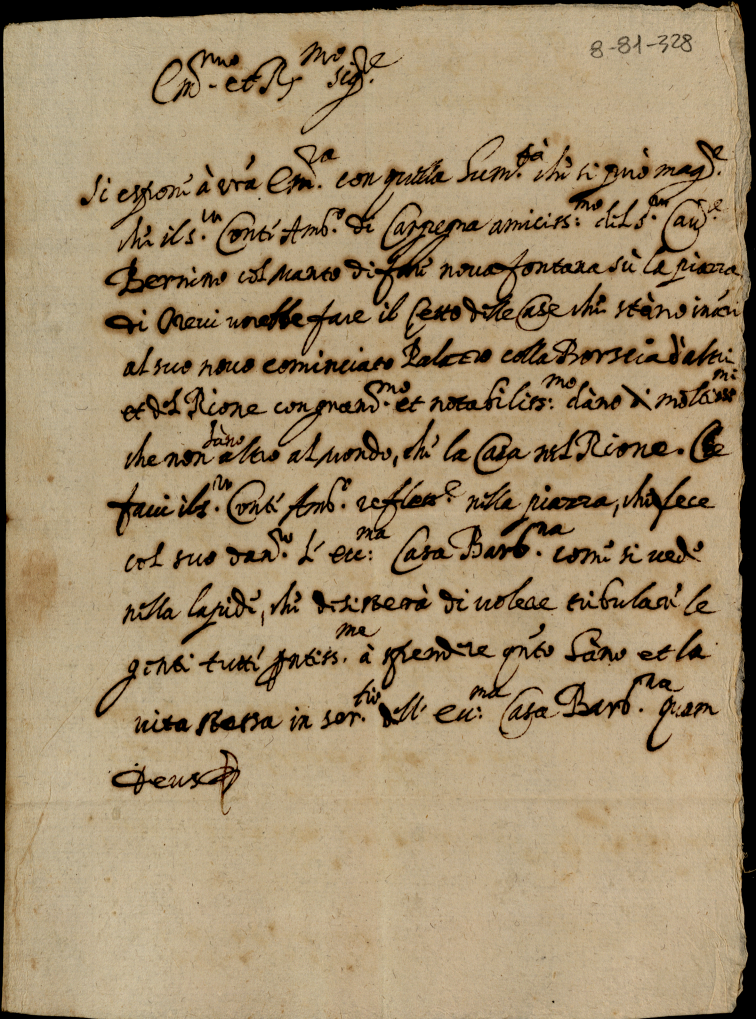 8-81-328
Em.mo et R.mo Sig.re
Si espone à vra Em.za con quella Sum.tà che si può mag.re
che il S.r Conte Amb.o di Carpegna amiciss.mo del S.r Cau.re
Bernino col manto di fare nova fontana sù la piazza
di Trevi vorebbe fare il Getto delle Case che stàno inãzi
al suo novo cominciato Palazzo colla Borscia d'altri
et del Rione con grand.mo et notabiliss.mo dàno di molti
che non hàno altro al mondo, che la Casa nel Rione. Che
facci il S.r Conte Amb.o refless.e nella piazza, che fece
col suo dan.ro l'ecc.ma Casa Barb.na come si vede
nella lapide, che desisterà di volere tribulare le
genti tutte pntiss.me à spendere qnto hàno et la
vita stessa in ser.tio dell'ecc.ma Casa Barb.na quam
Deus